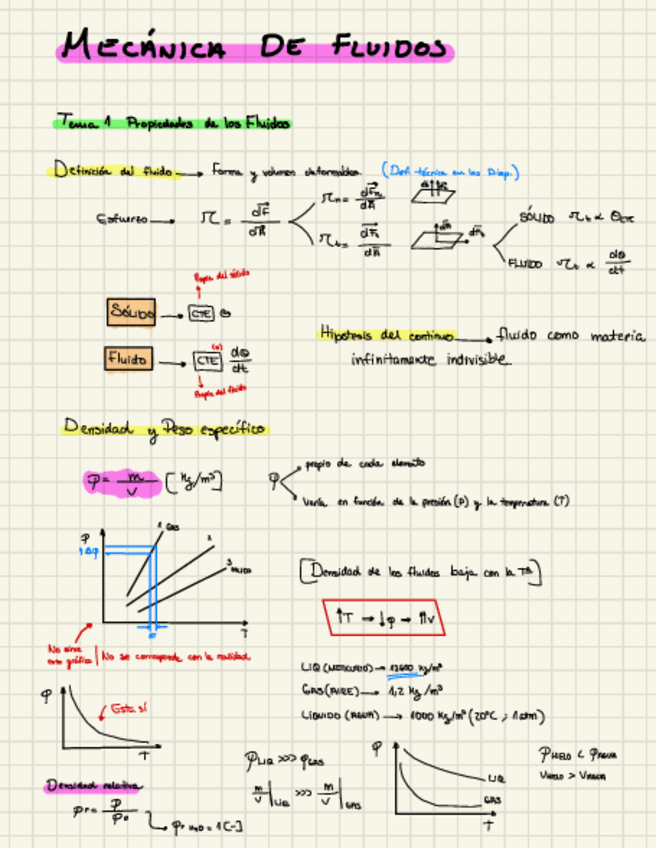 MECÁNICA DE FLUIDOS
Tema 1 Propiedades de los Fluidos
Definición del fluido → Forma y volumen deformables. (Def. técnica en las Diap.)
Esfuerzo → τ = dF/dA
τn = dFn/dA
τt = dFt/dA
SÓLIDO τt ∝ θ
FLUIDO τt ∝ dθ/dt
Propia del sólido
Sólido → CTE θ
Fluido → CTE dθ/dt
Propia del fluido
Hipótesis del continuo → fluido como materia
infinitamente indivisible.
Densidad y Peso específico
ρ = m/V [kg/m³]
ρ
propio de cada elemento
Varía en función de la presión (P) y la temperatura (T)
ρ
1 GAS
2
3
T
No sirve esta gráfica | No se corresponde con la realidad
[Densidad de los fluidos baja con la Tª]
↑T → ↓ρ → ↑V
LIQ (MERCURIO) → 13600 kg/m³
GAS (AIRE) → 1,2 kg/m³
LÍQUIDO (AGUA) → 1000 kg/m³ (20ºC ; 1 atm)
ρ
Esta sí
T
ρLIQ >>> ρGAS
m/V|LIQ >>> m/V|GAS
ρ
LIQ
GAS
T
ρHIELO < ρAGUA
VHIELO > VAGUA
Densidad relativa
ρr = ρ/ρo
ρr H2O = 1 [-]